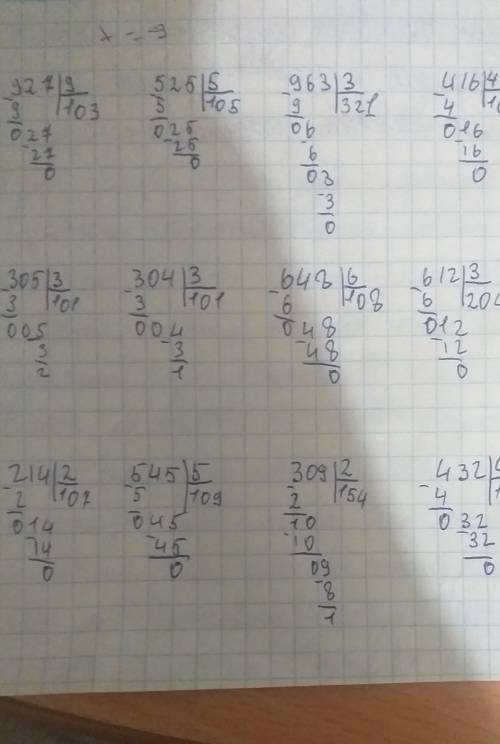 x = -9
927|9 525|5 963|3 416|4
-9 103 -5 105 -9 321 -4
027 025 06 016
-27 -25 6 -16
0 0 03 0
-3
0
305|3 304|3 648|6 612|3
-3 101 -3 101 -6 108 -6 204
005 004 048 012
3 -3 -48 -12
2 1 0 0
214|2 545|5 309|2 432|
-2 107 -5 109 -2 154 -4
014 045 10 032
-14 -45 -10 -32
0 0 09 0
-8
1